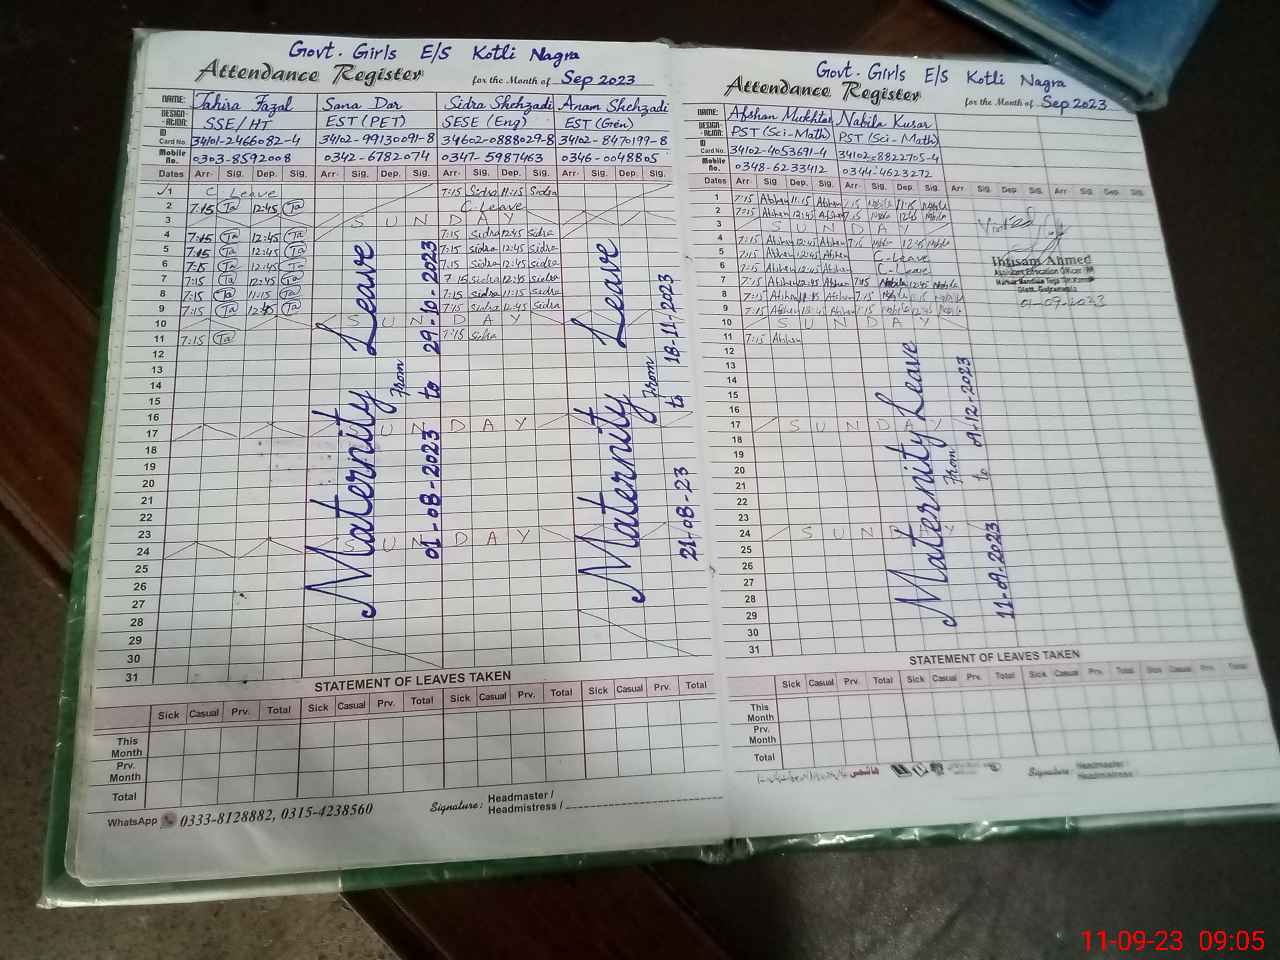 Govt. Girls E/S Kotli Nagra
Attendance Register for the Month of Sep 2023
NAME: Tahira Fazal Sana Dar Sidra Shehzadi Anam Shehzadi
DESIGN-ATION: SSE/HT EST (PET) SESE (Eng) EST (Gen)
ID Card No. 34101-2466082-4 34102-99130091-8 34602-0888029-8 34102-8470199-8
Mobile No. 0303-8592008 0342-6782074 0347-5987463 0346-0048805
Dates Arr. Sig. Dep. Sig. Arr. Sig. Dep. Sig. Arr. Sig. Dep. Sig. Arr. Sig. Dep. Sig.
1 C Leave 7:15 Sidra 11:15 Sidra
2 7:15 Ta 12:45 Ta C-Leave
3 S U N D A Y
4 7:15 Ta 12:45 Ta 7:15 Sidra 12:45 Sidra
5 7:15 Ta 12:45 Ta 7:15 Sidra 12:45 Sidra
6 7:15 Ta 12:45 Ta 7:15 Sidra 12:45 Sidra
7 7:15 Ta 12:45 Ta 7:15 Sidra 12:45 Sidra
8 7:15 Ta 11:15 Ta 7:15 Sidra 11:15 Sidra
9 7:15 Ta 12:45 Ta 7:15 Sidra 12:45 Sidra
10 S U N D A Y
11 7:15 Ta 7:15 Sidra
12
13
14
15
16
17 S U N D A Y
18
19
20
21
22
23
24 S U N D A Y
25
26
27
28
29
30
31
Maternity Leave
From 01-08-2023 to 29-10-2023
Maternity Leave
From 21-08-23 to 18-11-2023
STATEMENT OF LEAVES TAKEN
Sick Casual Prv. Total Sick Casual Prv. Total Sick Casual Prv. Total Sick Casual Prv. Total
This Month
Prv. Month
Total
WhatsApp 0333-8128882, 0315-4238560 Signature: Headmaster / Headmistress /
Govt. Girls E/S Kotli Nagra
Attendance Register for the Month of Sep 2023
NAME: Afshan Mukhtar Nabila Kusar
DESIGN-ATION: PST (Sci-Math) PST (Sci-Math)
ID Card No. 34102-4053691-4 34102-8822705-4
Mobile No. 0348-6233412 0344-4623272
Dates Arr. Sig. Dep. Sig. Arr. Sig. Dep. Sig. Arr Sig. Dep. Sig. Arr. Sig. Dep. Sig.
1 7:15 11:15 7:15 11:15
2 7:15 12:45 7:15 12:45
3 S U N D A Y
4 7:15 12:45 7:15 12:45
5 7:15 12:45 C-Leave
6 7:15 12:45 C-Leave
7 7:15 12:45 7:15 12:45
8 7:15 11:15 7:15 11:15
9 7:15 12:45 7:15 12:45
10 S U N D A Y
11 7:15
12
13
14
15
16
17 S U N D A Y
18
19
20
21
22
23
24 S U N D A Y
25
26
27
28
29
30
31
Visited
Ihtisam Ahmed
Assistant Education Officer
01-09-2023
Maternity Leave
From 11-09-2023 to 09-12-2023
STATEMENT OF LEAVES TAKEN
Sick Casual Prv. Total Sick Casual Prv. Total Sick Casual Prv. Total Sick Casual Prv. Total
This Month
Prv. Month
Total
Signature: Headmaster / Headmistress /
11-09-23 09:05